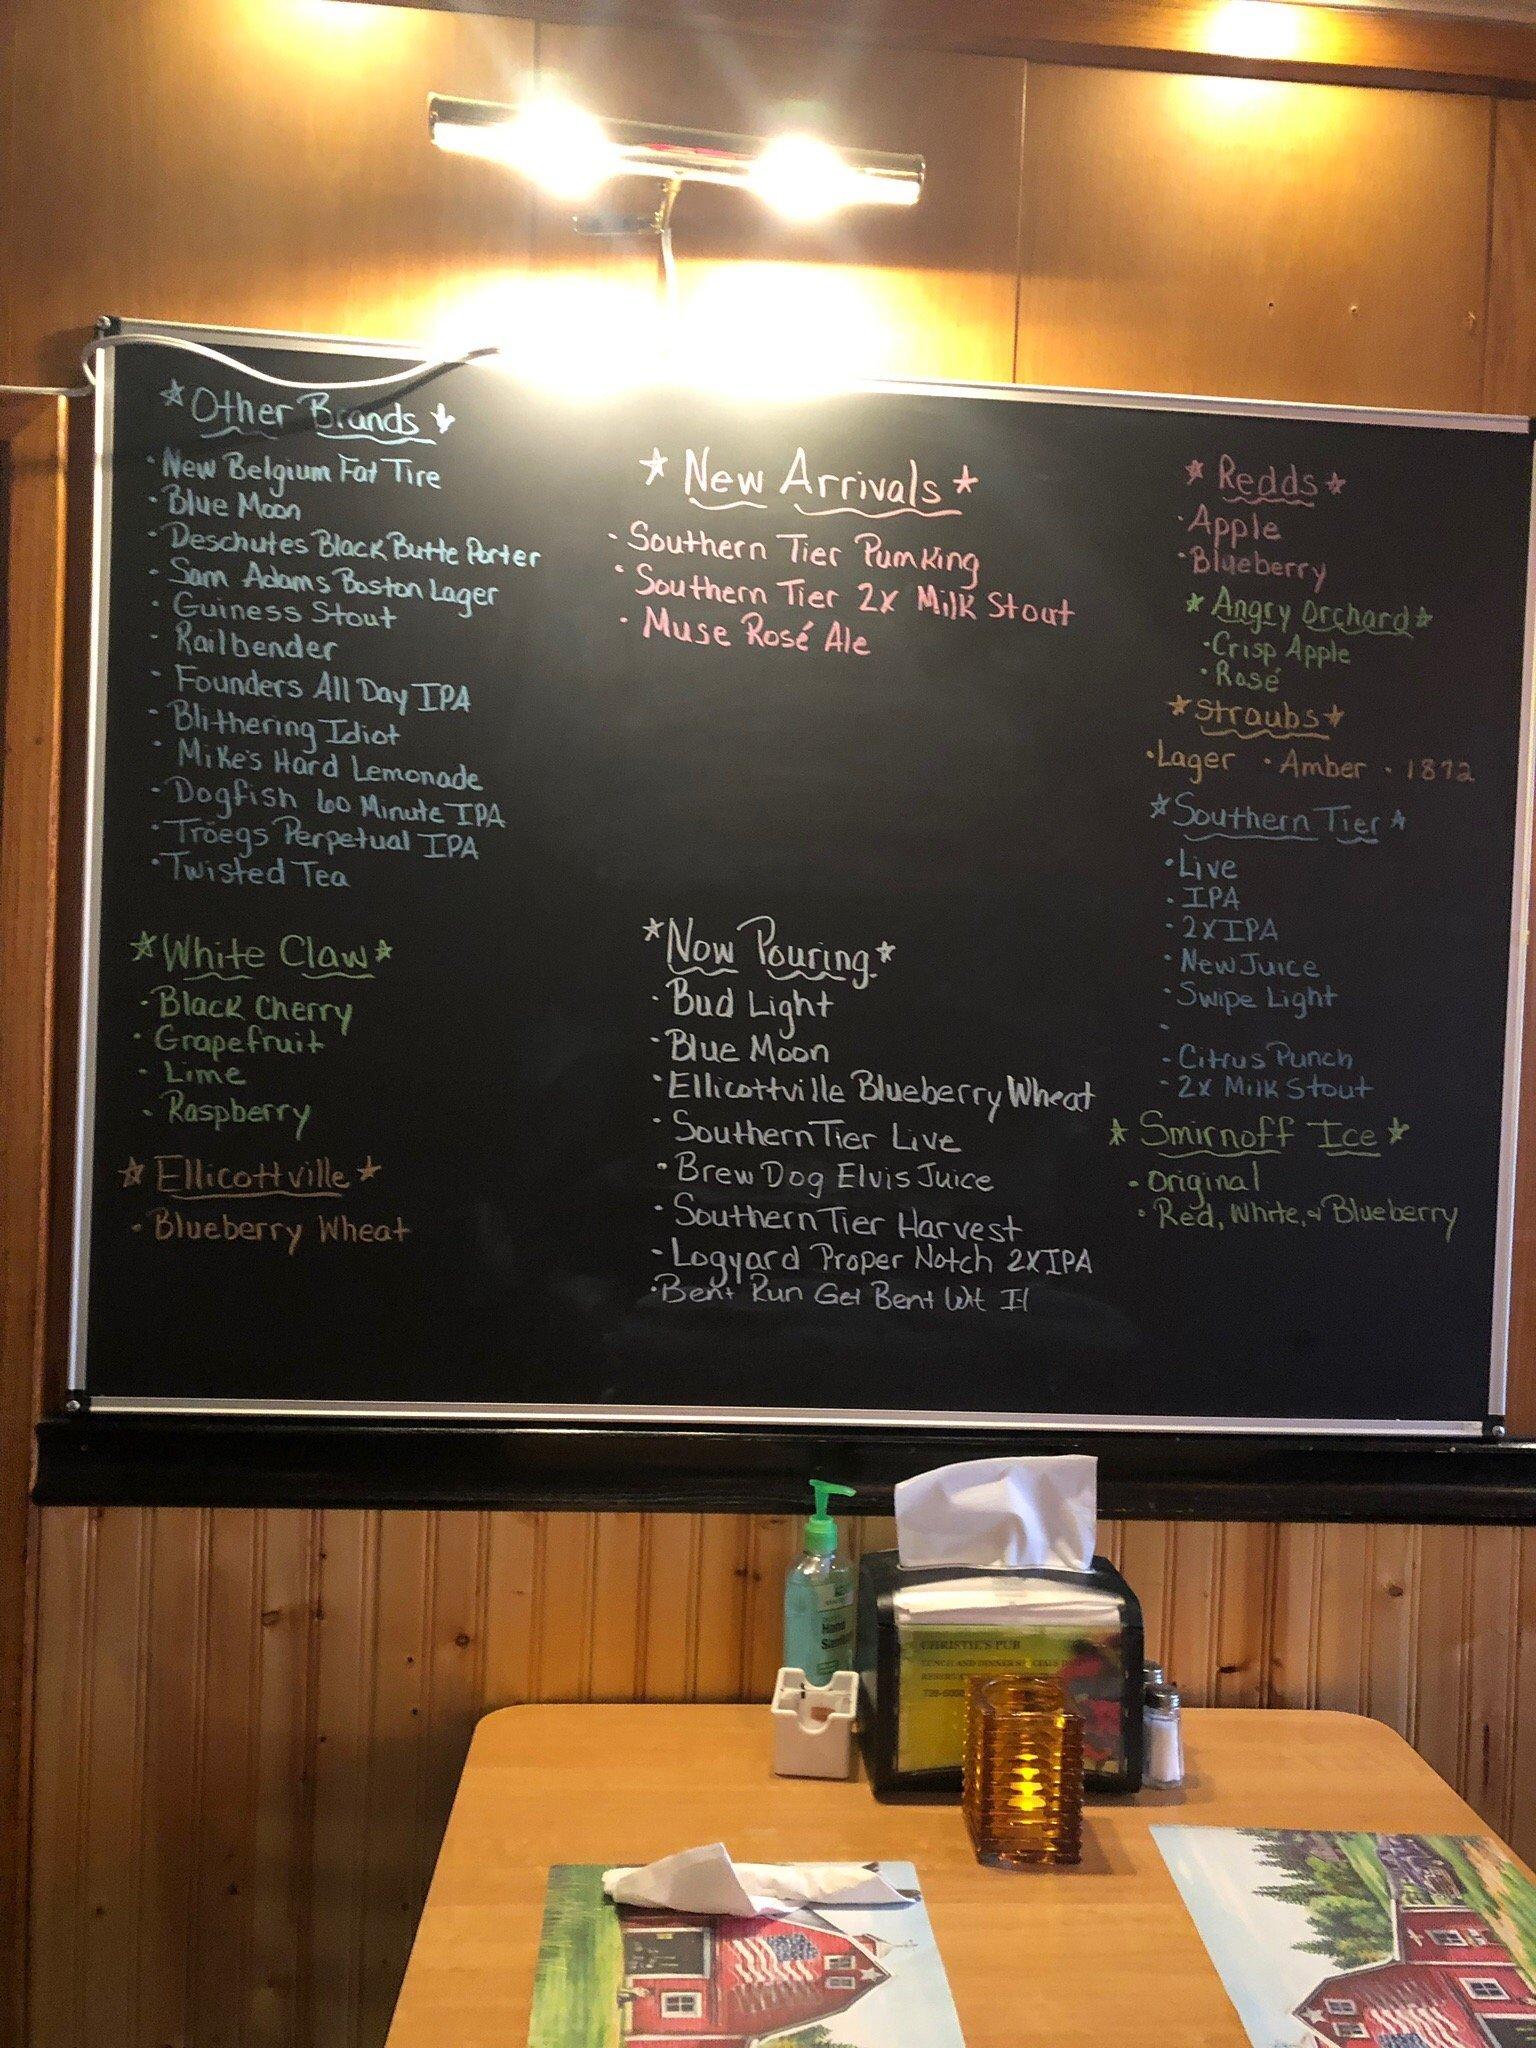 *Other Brands*
· New Belgium Fat Tire
· Blue Moon
· Deschutes Black Butte Porter
· Sam Adams Boston Lager
· Guiness Stout
· Railbender
· Founders All Day IPA
· Blithering Idiot
· Mike's Hard Lemonade
· Dogfish 60 Minute IPA
· Tröegs Perpetual IPA
· Twisted Tea
*White Claw*
· Black Cherry
· Grapefruit
· Lime
· Raspberry
*Ellicottville*
· Blueberry Wheat
*New Arrivals*
· Southern Tier Pumking
· Southern Tier 2x Milk Stout
· Muse Rosé Ale
*Now Pouring*
· Bud Light
· Blue Moon
· Ellicottville Blueberry Wheat
· Southern Tier Live
· Brew Dog Elvis Juice
· Southern Tier Harvest
· Logyard Proper Notch 2XIPA
· Bent Run Get Bent Wit It
*Redds*
· Apple
· Blueberry
*Angry Orchard*
· Crisp Apple
· Rosé
*Straubs*
· Lager · Amber · 1872
*Southern Tier*
· Live
· IPA
· 2XIPA
· New Juice
· Swipe Light
·
· Citrus Punch
· 2x Milk Stout
*Smirnoff Ice*
· Original
· Red, White, & Blueberry
Hand
CHRISTIE'S PUB
LUNCH AND DINNER